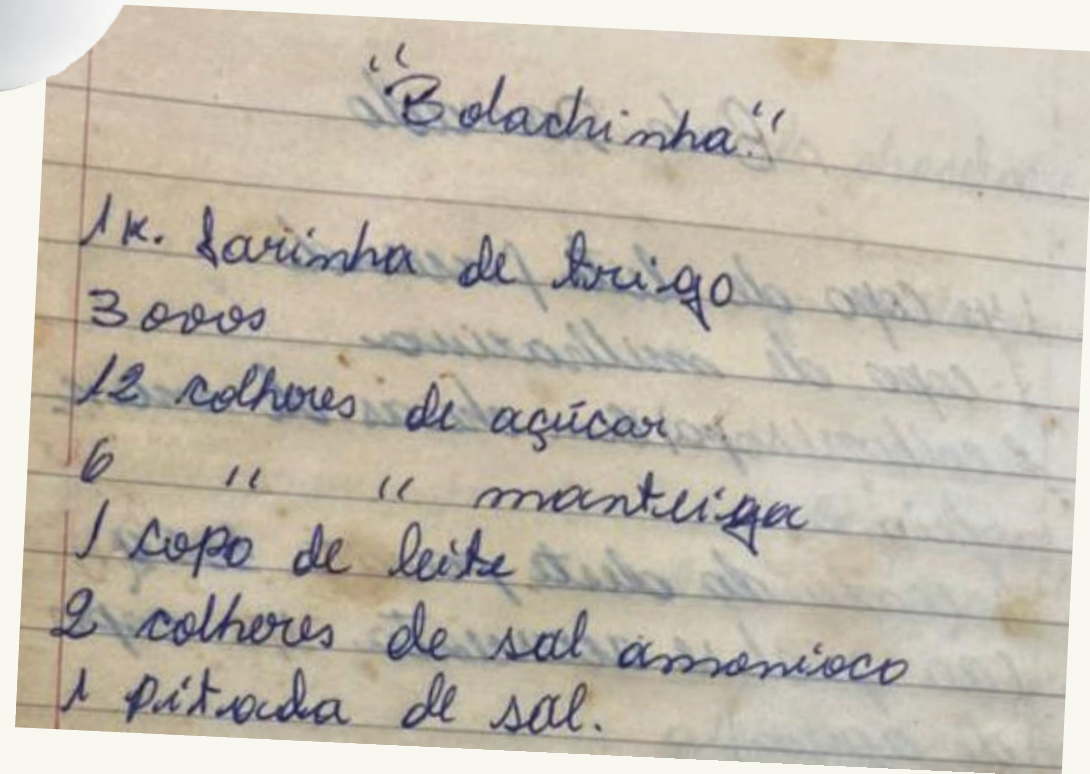 "Bolachinha"
1K. farinha de trigo
3 ovos
12 colheres de açúcar
6 " " manteiga
1 copo de leite
2 colheres de sal amoníaco
1 pitada de sal.